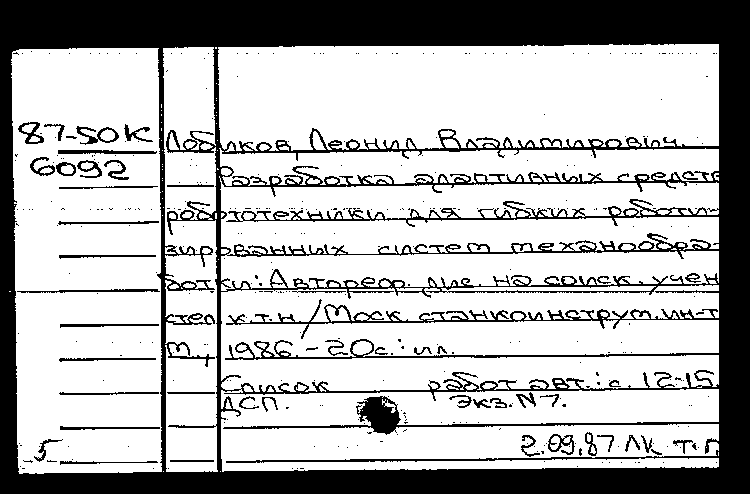 87-50К Лобиков, Леонид Владимирович.
6092 Разработка адаптивных средств
робототехники для гибких роботи-
зированных систем механообра-
ботки: Автореф. дис. на соиск. учен
степ. к.т.н / Моск. станкоинструм. ин-т
М., 1986. - 20с.: ил.
Список работ авт.: с. 12-15.
ДСП. Экз. N 7.
5 2.09.87 ЛК т.п